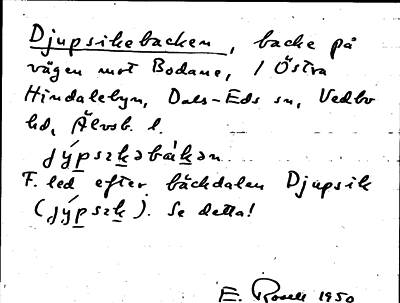 Djupsikebacken, backe på
vägen mot Bodane, i Östra
Hindalebyn, Dals-Eds sn, Vedbo
hd, Älvsb. l.
jýpsɩkəbákən
F. led efter bäckdalen Djupsik
(jýpsɩk). Se detta!
E. Rosell 1950